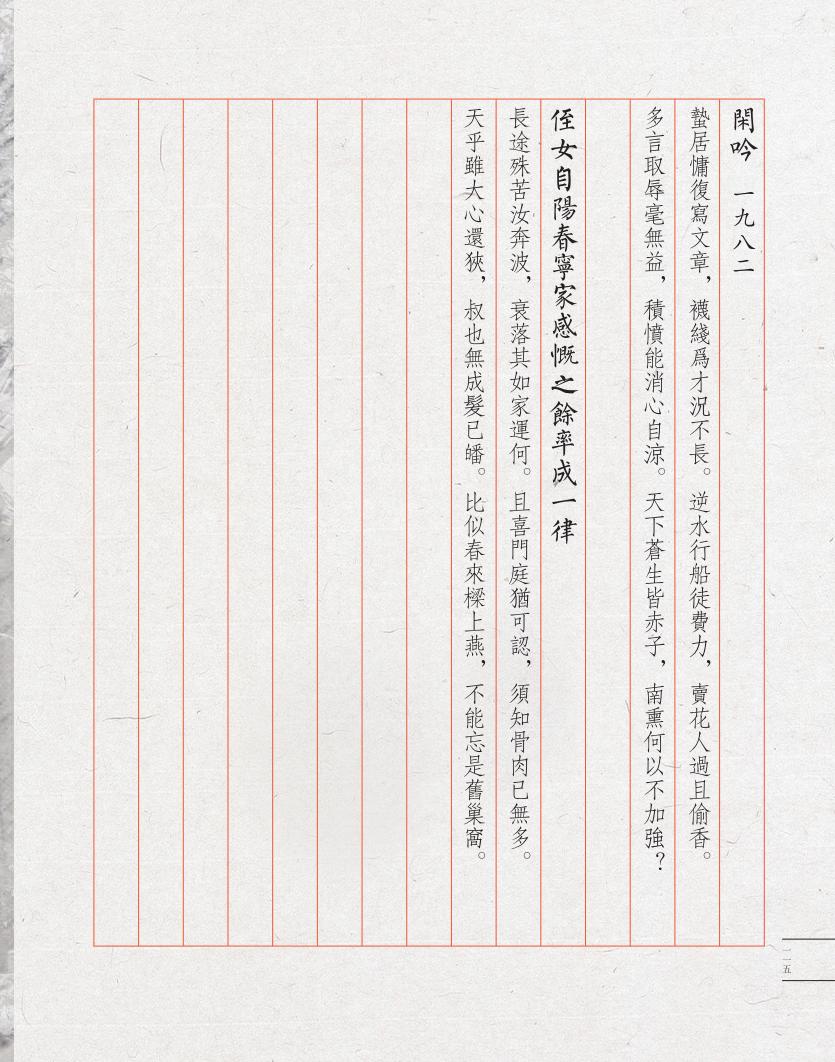 閑吟 一九八二
蟄居慵復寫文章，襪綫爲才況不長。逆水行船徒費力，賣花人過且偷香。
多言取辱毫無益，積憤能消心自涼。天下蒼生皆赤子，南熏何以不加強？
侄女自陽春寧家感慨之餘率成一律
長途殊苦汝奔波，衰落其如家運何。且喜門庭猶可認，須知骨肉已無多。
天乎雖大心還狹，叔也無成髮已皤。比似春來樑上燕，不能忘是舊巢窩。
一一五